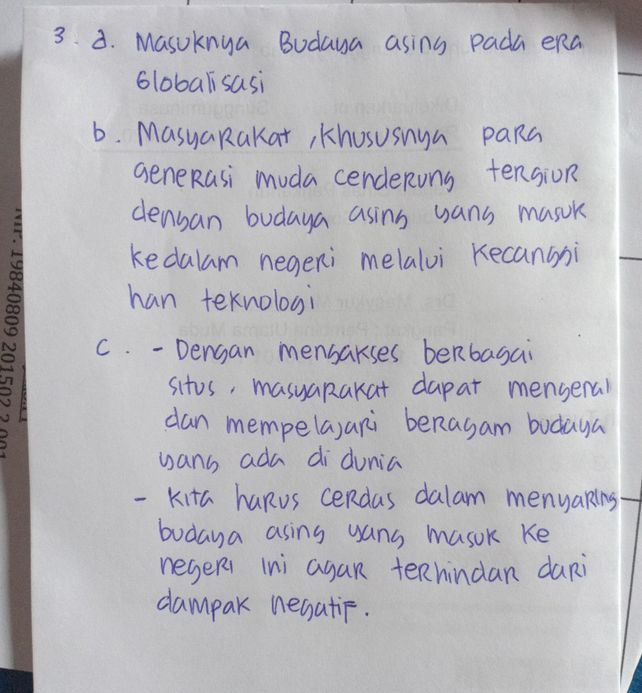 3. a. Masuknya Budaya asing pada era
Globalisasi
b. Masyarakat, khususnya para
generasi muda cenderung tergiur
dengan budaya asing yang masuk
kedalam negeri melalui kecanggi
han teknologi
c. - Dengan mengakses berbagai
situs, masyarakat dapat mengenal
dan mempelajari beragam budaya
yang ada di dunia
- Kita harus cerdas dalam menyaring
budaya asing yang masuk ke
negeri ini agar terhindar dari
dampak negatif.
19840809 201502 2 001